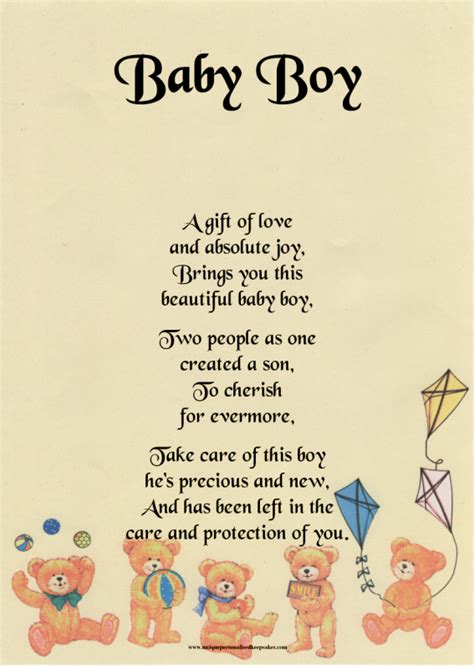 Baby Boy
A gift of love
and absolute joy,
Brings you this
beautiful baby boy,
Two people as one
created a son,
To cherish
for evermore,
Take care of this boy
he's precious and new,
And has been left in the
care and protection of you.
www.uniquepersonalisedkeepsakes.com